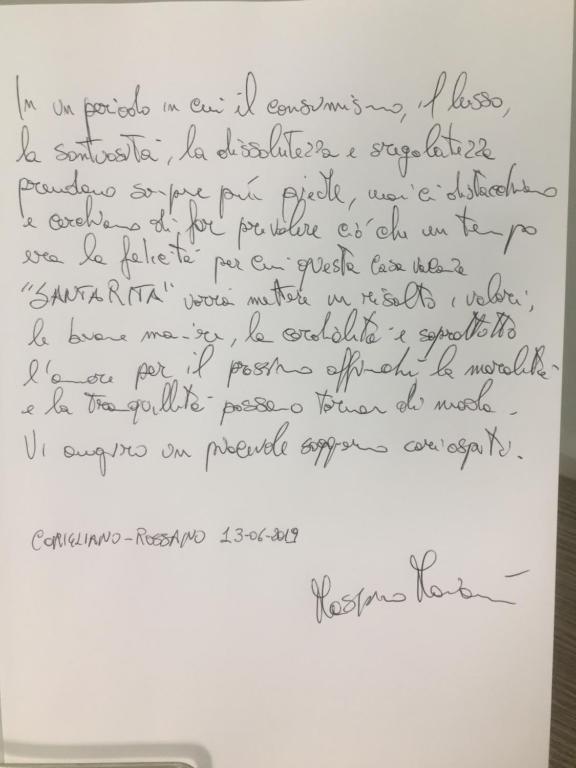 In un periodo in cui il consumismo, il lusso,
la sontuosità, la dissolutezza e sregolatezza
prendono sempre più piede, noi ci distacchiamo
e cerchiamo di far prevalere ciò che un tempo
era la felicità per cui questa casa vacanze
"SANTA RITA" vorrà mettere in risalto i valori,
le buone maniere, la cordialità e soprattutto
l'amore per il prossimo affinché la moralità
e la tranquillità possano tornar di moda.
Vi auguro un piacevole soggiorno cari ospiti.
CORIGLIANO-ROSSANO 13-06-2019